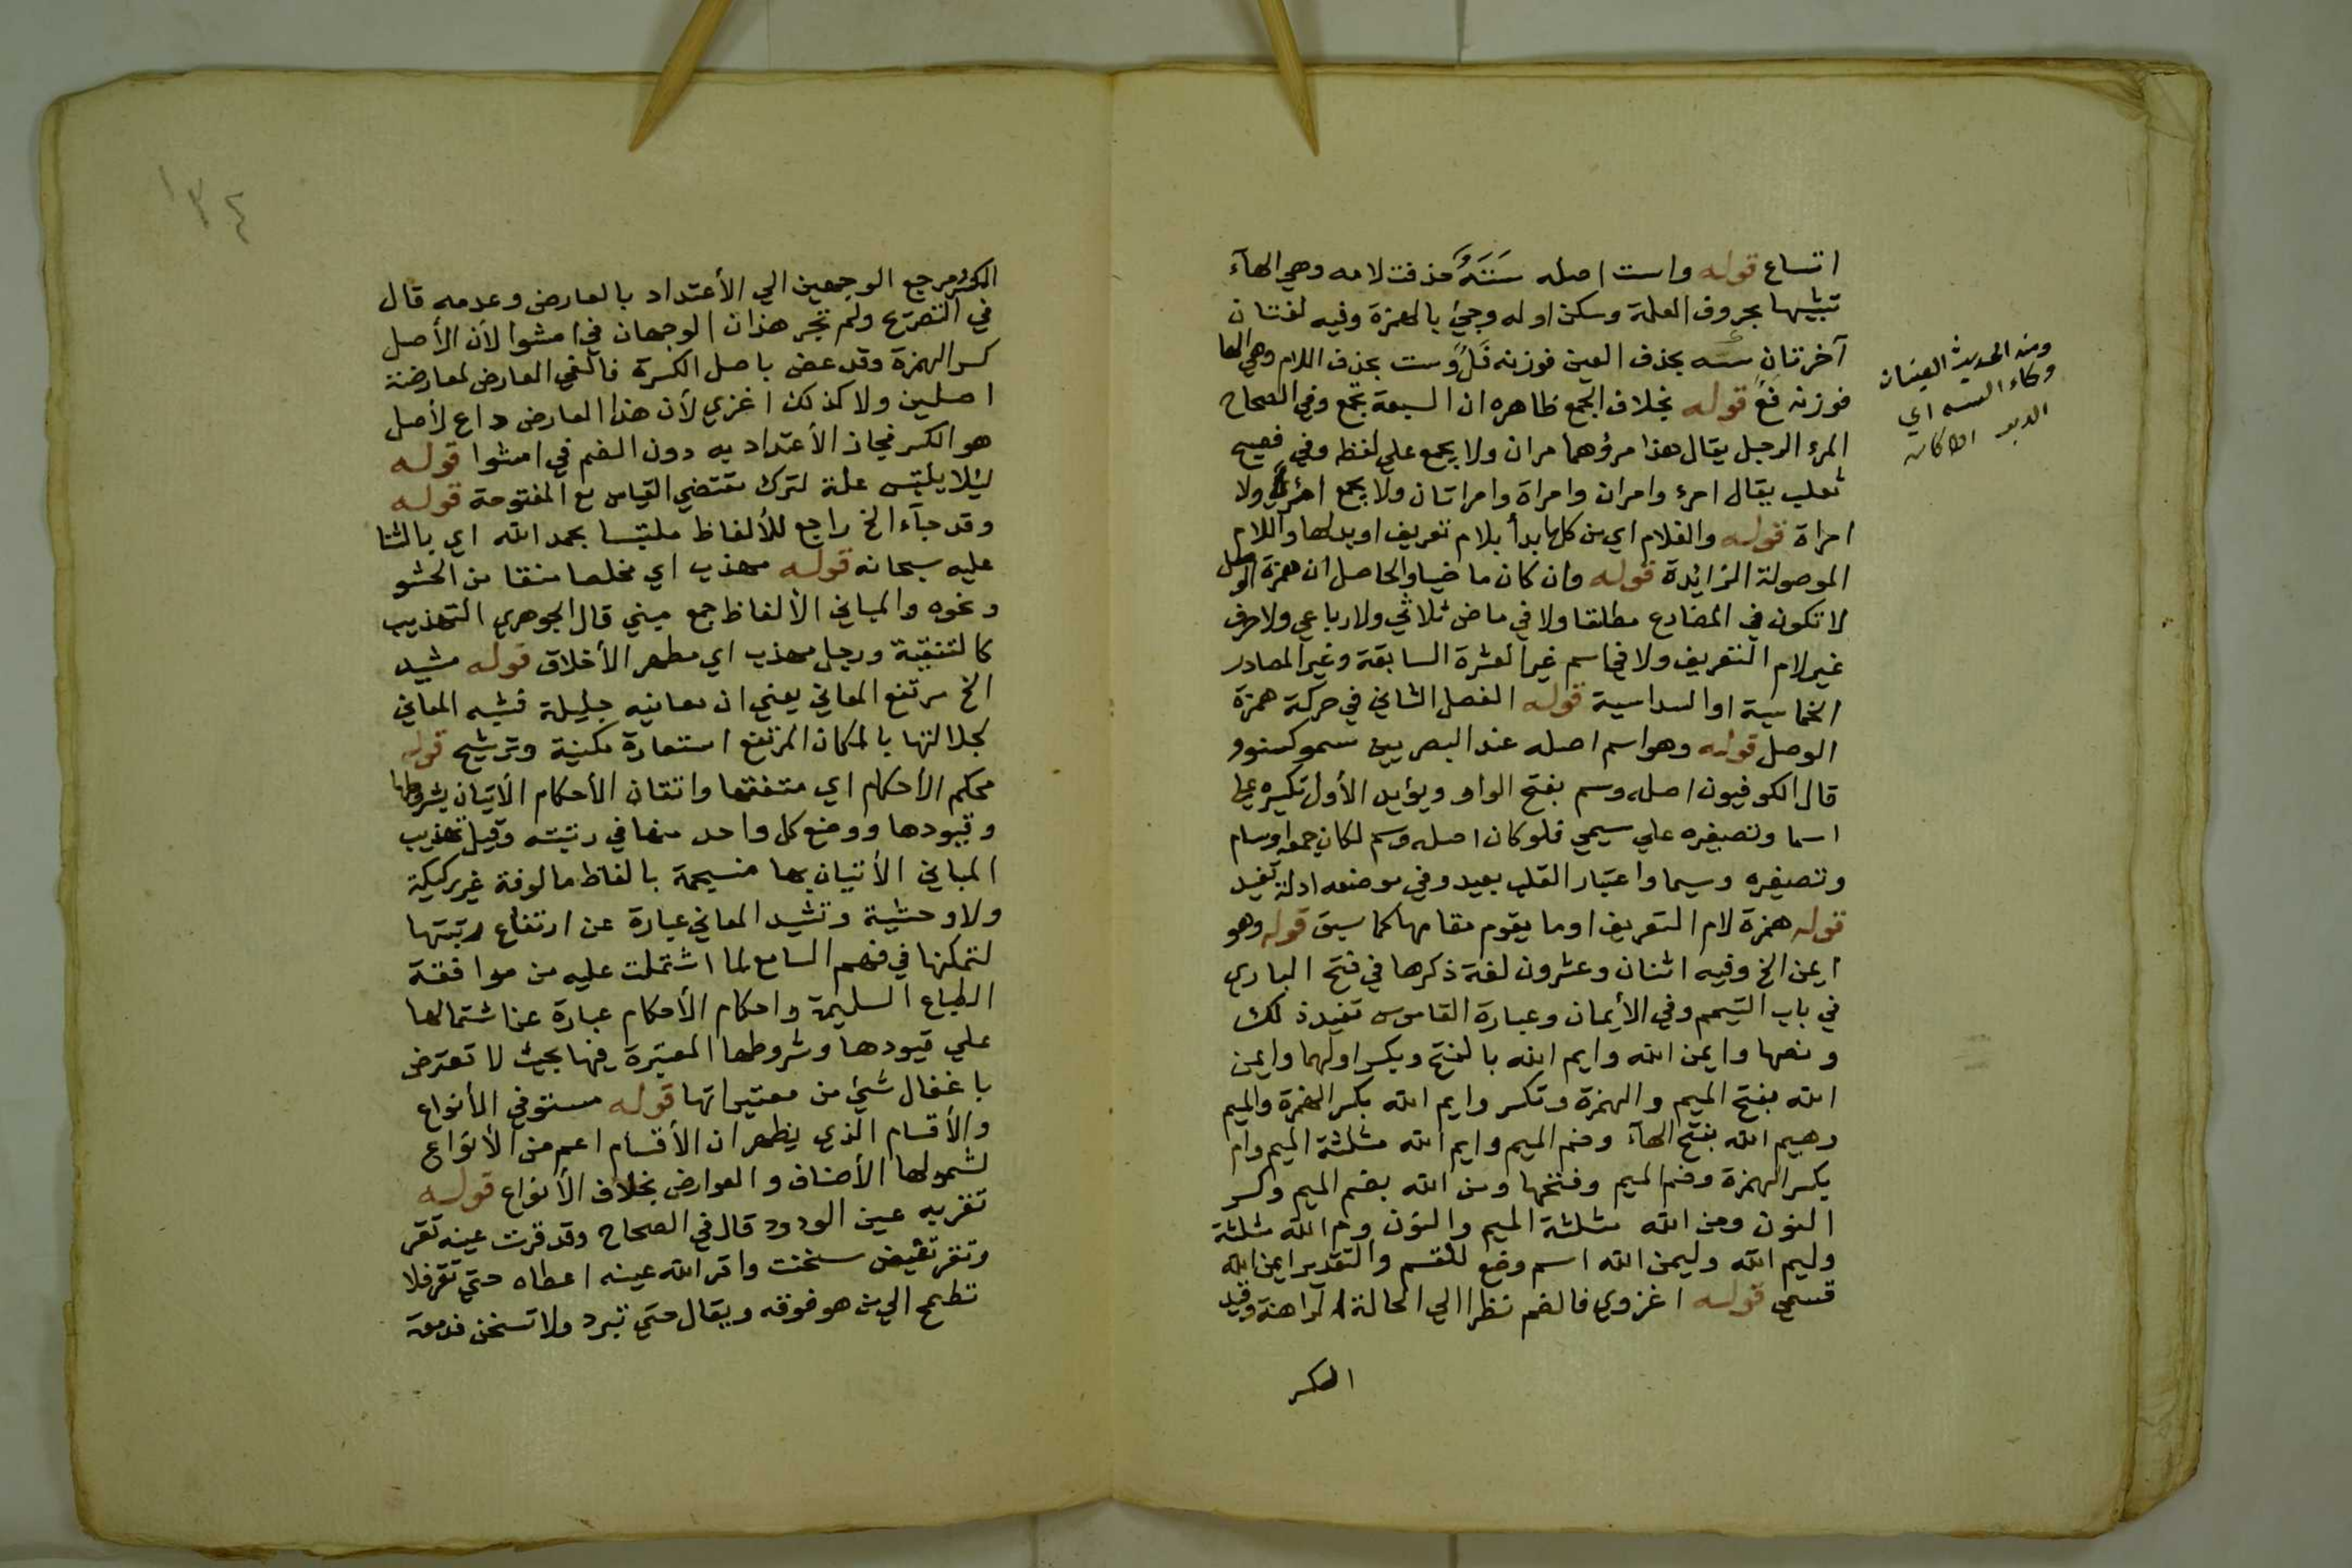 اتساع قوله واست اصله سَتَهٌ حذفت لامه وهي الهآء
تشبيها بحروف العلة وسكن اوله وجئ بالهمزة وفيه لغتان
آخرتان سَه بحذف العين فوزنه فَلٌ وست بحذف اللام وهي الها
فوزنه فَعٌ قوله بخلاف الجمع ظاهره ان السبعة تجمع وفي الصحاح
المرء الرجل يقال هذا مرؤهما مران ولا يجمع علي لفظه وفي فصيح
ثعلب يقال امرء وامران وامراة وامراتان ولا يجمع امرء ولا
امراة قوله والغلام اي من كلما بدأ بلام تعريف او بدلها واللام
الموصولة الزائدة قوله وان كان ماضيا والحاصل ان همزة الوصل
لا تكون في المضارع مطلقا ولا في ماض ثلاثي ولا رباعي ولا حرف
غير لام التعريف ولا في اسم غير العشرة السابقة وغير المصادر
الخماسية او السداسية قوله الفصل الثاني في حركة همزة
الوصل قوله وهو اسم اصله عند البصريين سمو كسنوو
قال الكوفيون اصله وسم بفتح الواو ويؤيد الأول تكسيره علي
اسما وتصغيره علي سيمي فلو كان اصله وسم لكان جمعه اوسام
وتصغيره وسيما واعتبار القلب بعيد وفي موضعه ادلة تفيد
قوله همزة لام التعريف او ما يقوم مقامها كما سبق قوله وهو
ايمن الخ وفيه اثنان وعشرون لغة ذكرها في فتح الباري
في باب التيمم وفي الأيمان وعبارة القاموس تفيد ذلك
ونصها وايمن الله وايم الله بالفتح وبكسر اولهما وايمن
الله بفتح الميم والهمزة وتكسر وايم الله بكسر الهمزة والميم
وهيم الله بفتح الهآء وضم الميم وايم الله مثلثة الميم وام
بكسر الهمزة وضم الميم وفتحها ومن الله بضم الميم وكسر
النون ومن الله مثلثة الميم والنون وم الله مثلثة
وليم الله وليمن الله اسم وضع للقسم والتقدير ايمن الله
قسمي قوله اغزوي فالضم نظرا الي الحالة الراهنة وقيد
الكسر
ومنه الحديث العينان
وكاء السه اي
الدبر
الكسر مرجع الوجهين الي الأعتداد بالعارض وعدمه قال
في التصريح ولم تجر هذان الوجهان في امشوا لأن الأصل
كسر الهمزة وقد عضد باصل الكسرة فالغي العارض لمعارضة
اصلين ولا كذلك اغزي لأن هذا العارض داع لأصل
هو الكسر فجاز الأعتداد به دون الضم في امشوا قوله
ليلا يلتبس علة لترك مقتضي القياس مع المفتوحة قوله
وقد جآء الخ راجع للألفاظ ملتبسا بحمد الله اي بالثنا
عليه سبحانه قوله مهذب اي مخلصا منقا من الحشو
ونحوه والمباني الألفاظ جمع مبني قال الجوهري التهذيب
كالتنقية ورجل مهذب اي مطهر الأخلاق قوله مشيد
الخ مرتفع المعاني يعني ان معانيه جليلة فشبه المعاني
لجلالتها بالمكان المرتفع استعارة مكنية وترشيح قوله
محكم الأحكام اي متقنها واتقان الأحكام الأتيان بشروطها
وقيودها ووضع كل واحد منها في رتبته وقيل تهذيب
المباني الأتيان بها فسيحة بالفاظ مالوفة غير ركيكة
ولا وحشية وتشيد المعاني عبارة عن ارتفاع رتبتها
لتمكنها في فهم السامع لما اشتملت عليه من موافقة
الطباع السليمة واحكام الأحكام عبارة عن اشتمالها
علي قيودها وشروطها المعتبرة فيها بحيث لا تعترض
باغفال شئ من معتبراتها قوله مستوفي الأنواع
والأقسام الذي يظهر ان الأقسام اعم من الأنواع
لشمولها الأصناف والعوارض بخلاف الأنواع قوله
تقر به عين الودود قال في الصحاح وقد قرت عينه تقر
وتقر نقيض سخنت واقر الله عينه اعطاه حتي تقر فلا
تطمح الي من هو فوقه ويقال حتي تبرد ولا تسخن فدمعة
١٣٤